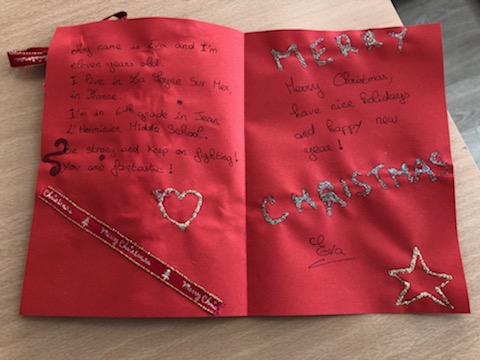 My name is Eva and I'm
eleven years old.
I live in La Seyne Sur Mer,
in France.
I'm in 6th grade in Jean
L'Herminier Middle School.
Be strong and keep on fighting!
You are fantastic!
Christmas
Merry Christmas
Merry Chris
MERRY
Merry Christmas,
have nice holidays
and happy new
year!
CHRISTMAS
Eva